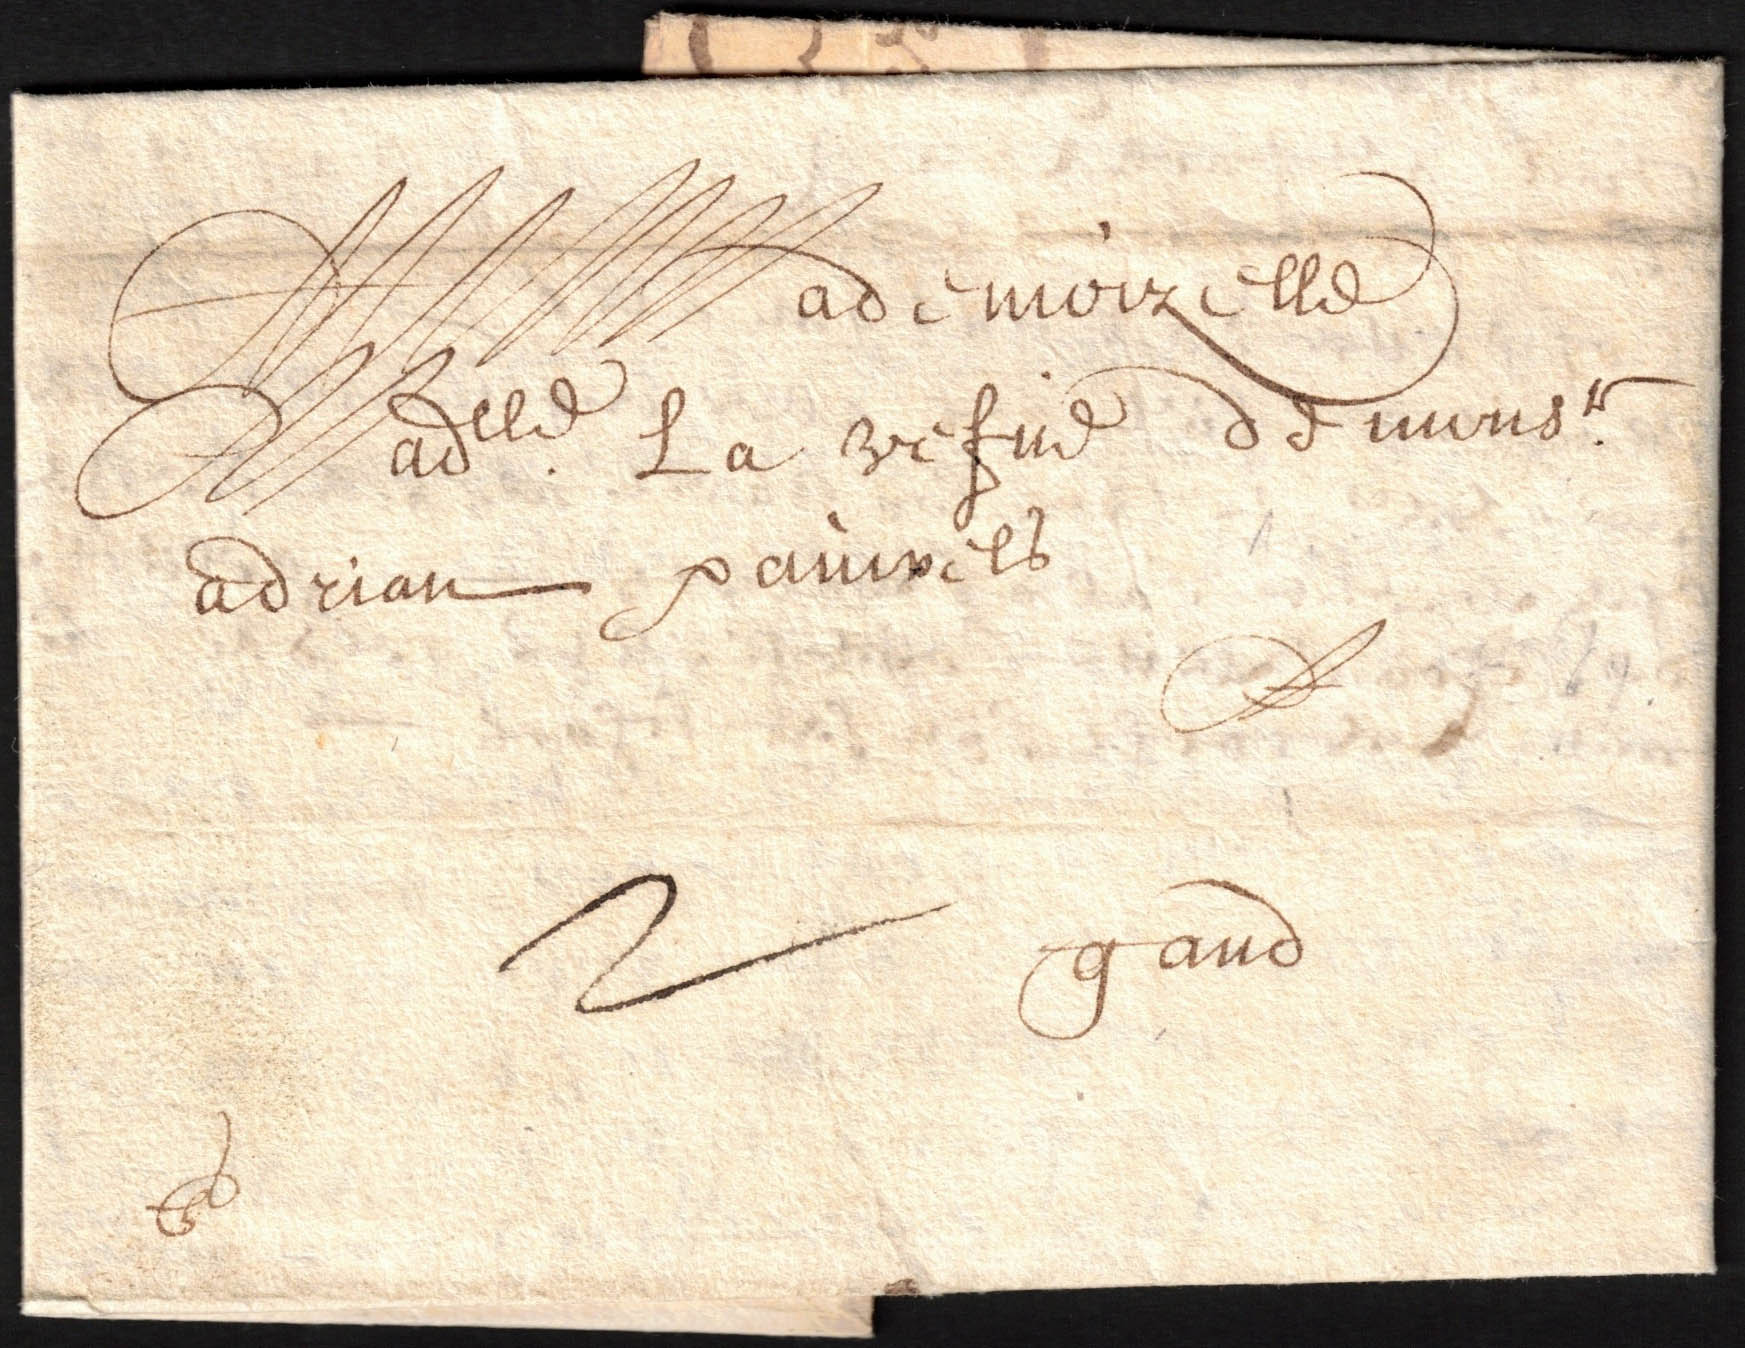 Mademoizelle
Madlle. La vefue de monsr.
adrian pauwels
2 gand